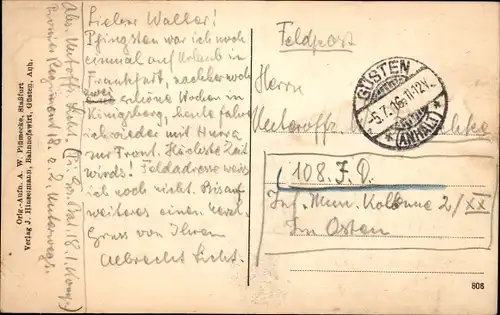 Lieber Walter!
Pfingsten war ich noch
einmal auf Urlaub in
Frankfurt, nachher noch
zwei schöne Wochen in
Königsberg, heute fahre
ich wieder mit Hurra
zur Front. Höchste Zeit
wirds! Feldadresse weiss
ich noch nicht. Bis auf
weiteres einen herzl.
Gruss von Ihrem
Albrecht Licht.
Abs. Unteroffz. Licht
Orig.-Aufn. A. W. Plümecke, Staßfurt
Verlag J. Hinsemann, Bahnhofswirt, Güsten, Anh.
Feldpost
GÜSTEN
-5.7.06. 11-12V.
(ANHALT)
Herrn
Unteroffz.
108. J. D.
Inf. Mun. Kolonne 2/XX
Im Osten
806